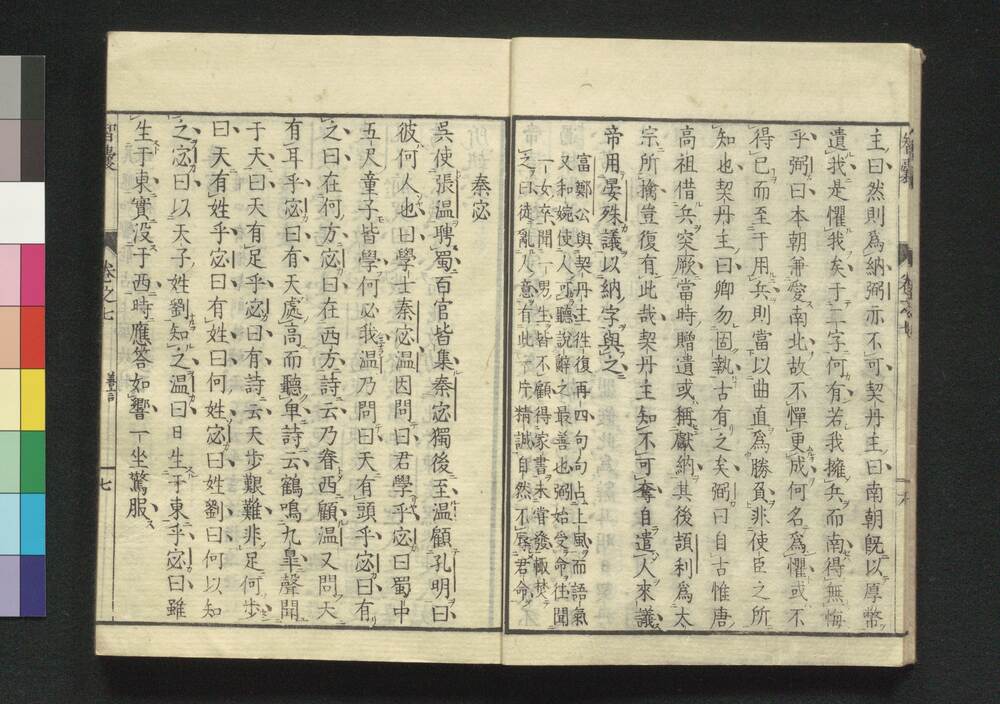 主曰然則爲納弼亦不可契丹主曰南朝既以厚幣
遺我是懼我矣于二字何有若我擁兵而南得無悔
乎弼曰本朝兼愛南北故不憚更成何名爲懼或不
得已而至于用兵則當以曲直爲勝負非使臣之所
知也契丹主曰卿勿固執古有之矣弼曰自古惟唐
高祖借兵突厥當時贈遺或稱獻納其後頡利爲太
宗所擒豈復有此哉契丹主知不可奪自遣人來議
帝用晏殊議以納字與之
富鄭公與契丹主往復再四句句占上風而語氣
又和婉使人可聽說辭之最善也弼始受命往聞
一女卒聞一男生皆不顧得家書未嘗發輒焚
之曰徒亂人意有此一片精誠自然不辱君命
秦宓
吳使張溫聘蜀百官皆集秦宓獨後至溫顧孔明曰
彼何人也曰學士秦宓溫因問曰君學乎宓曰蜀中
五尺童子皆學何必我溫乃問曰天有頭乎宓曰有
之曰在何方宓曰在西方詩云乃眷西顧溫又問天
有耳乎宓曰有天處高而聽卑詩云鶴鳴九皐聲聞
于天曰天有足乎宓曰有詩云天步艱難非足何步
曰天有姓乎宓曰有姓曰何姓宓曰姓劉曰何以知
之宓曰以天子姓劉知之溫曰日生于東乎宓曰雖
生于東實沒于西時應答如響一坐驚服
智囊
卷之七
七